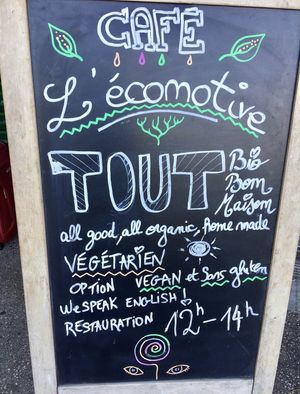 CAFÉ
L'écomotive
TOUT
Bio
Bon
Maison
all good, all organic, home made
VÉGÉTARIEN
OPTION VEGAN et Sans gluten
We SPEAK ENGLISH!
RESTAURATION 12h-14h